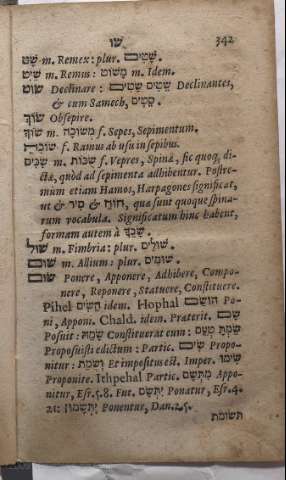 שו 342
שָׁט m. Remex: plur. שָׁטִים.
שַׁיִט m. Remus: מָשׁוֹט m. Idem.
שׂוּט Declinare: שָׂטִים שֵׂטִים Declinantes,
& cum Samech, סֵטִים.
שׂוּךְ Obsepire.
שׂוֹךְ m. מְשׂוּכָה f. Sepes, Sepimentum.
שׂוֹכָה f. Ramus ab usu in sepibus.
שִׂכִּים m. שִׂכּוֹת f. Vepres, Spinæ, sic quoque di-
ctæ, quòd ad sepimenta adhibentur. Postre-
mum etiam Hamos, Harpagones significat,
ut סִיר & חוֹחַ, quæ sunt quoque spina-
rum vocabula. Significatum hinc habent,
formam autem à שָׂכַךְ.
שׁוּל m. Fimbria: plur. שׁוּלִים.
שׁוּם m. Allium: plur. שׁוּמִים.
שׂוּם Ponere, Apponere, Adhibere, Compo-
nere, Reponere, Statuere, Constituere.
Pihel הֵשִׂים idem. Hophal הוּשַׂם Po-
ni, Apponi. Chald. idem. Præterit. שָׂם
Posuit: שָׂמֵהּ Constituerat eum: שָׂמְתָּ טְעֵם
Proposuisti edictum: Partic. שִׂים Propo-
nitur: וְשֻׂמַת Et impositus est. Imper. שִׂימוּ
Proponite. Ithpehal Partic. מִתְּשָׂם Appo-
nitur, Esr. 5. 8. Fut. יִתְּשָׂם Ponatur, Esr. 4.
21: יִתְּשָׂמוּן Ponentur, Dan. 2. 5.
תשומת